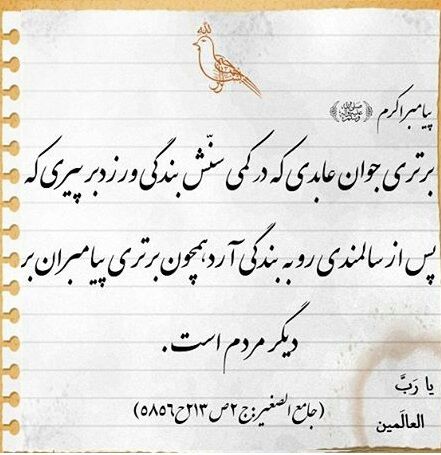 پیامبر اکرم ﷺ
برتری جوان عابدی که در کمی سنّش بندگی ورزد بر پیری که
پس از سالمندی رو به بندگی آرد، همچون برتری پیامبران بر
دیگر مردم است.
(جامع الصغیر: ج ۲ ص ۲۱۳ ح ۵۸۵۶)
یا رَبَّ
العالَمین